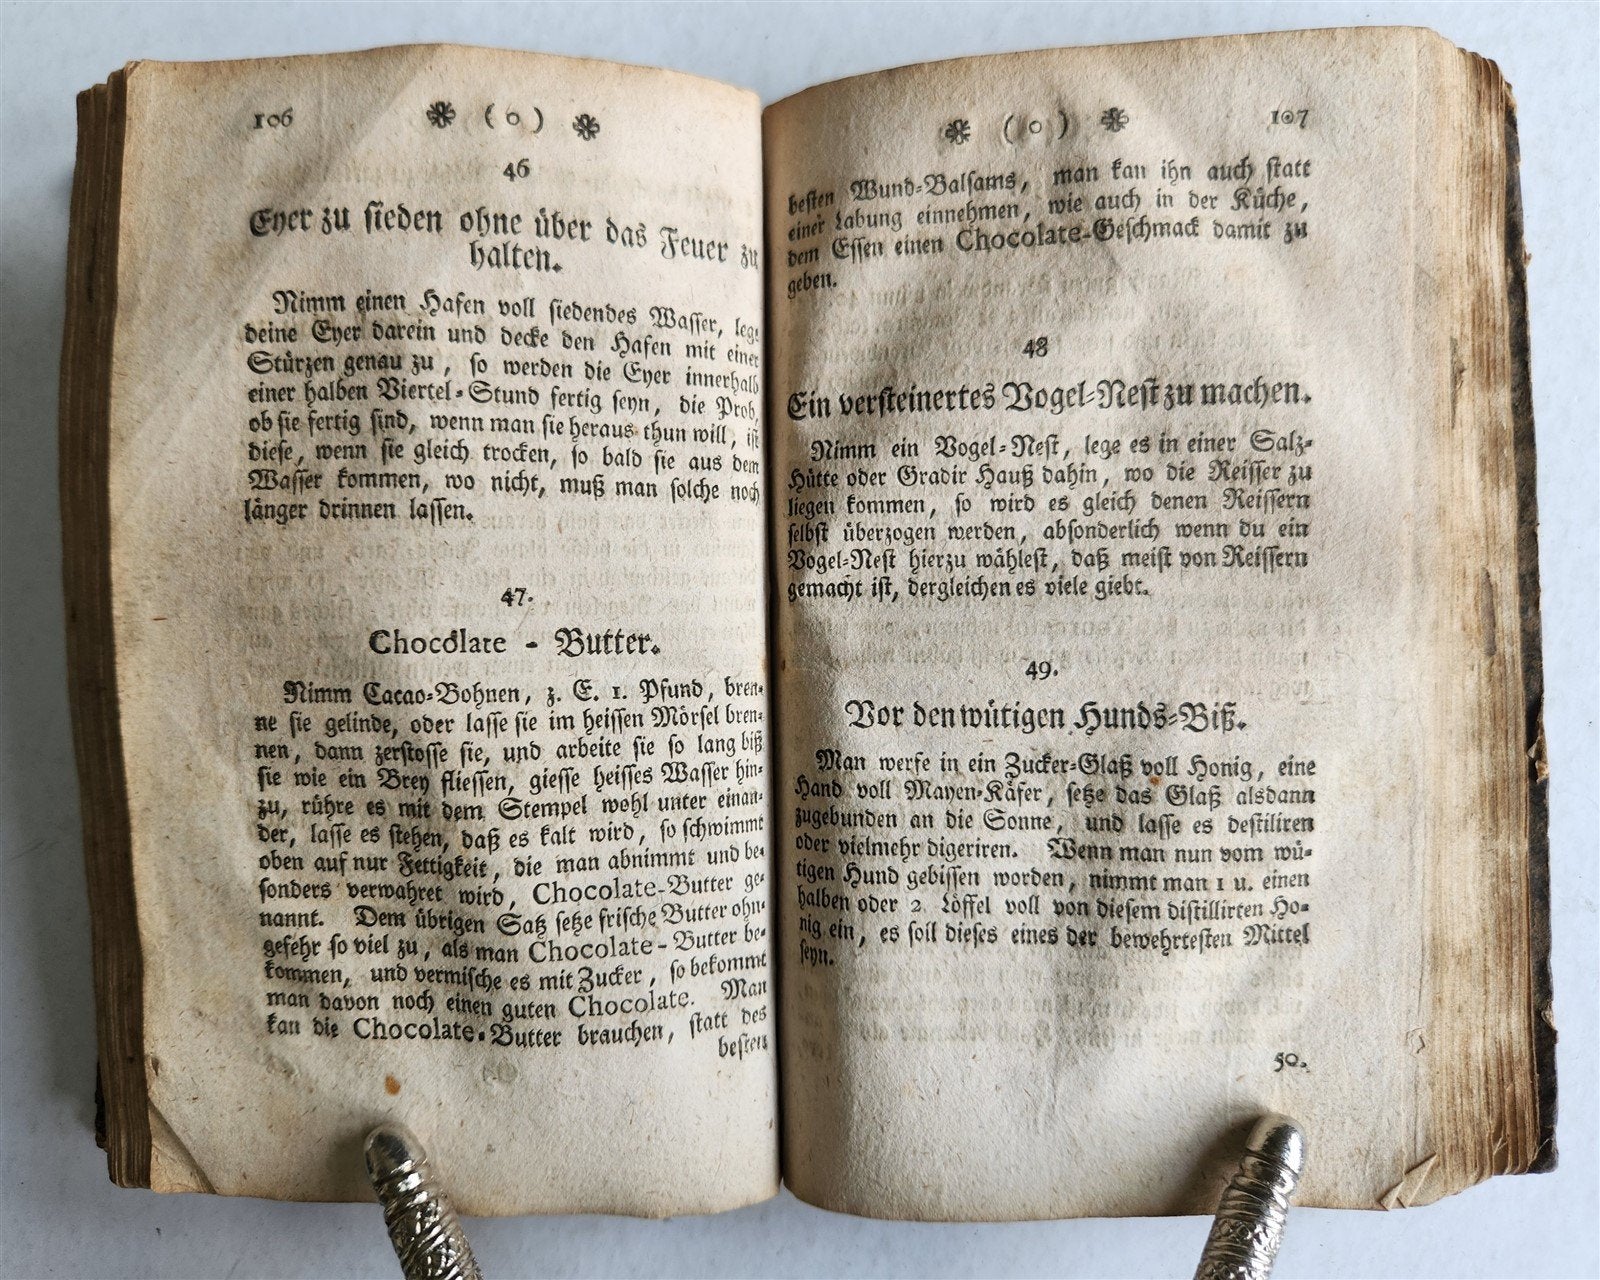 106 ❋ ( o ) ❋
46
Eyer zu sieden ohne über das Feuer zu
halten.
Nimm einen Hafen voll siedendes Wasser, lege
deine Eyer darein und decke den Hafen mit einer
Stürzen genau zu, so werden die Eyer innerhalb
einer halben Viertel-Stund fertig seyn, die Prob,
ob sie fertig sind, wenn man sie heraus thun will, ist
diese, wenn sie gleich trocken, so bald sie aus dem
Wasser kommen, wo nicht, muß man solche noch
länger drinnen lassen.
47.
Chocolate - Butter.
Nimm Cacao-Bohnen, z. E. 1. Pfund, bren-
ne sie gelinde, oder lasse sie im heissen Mörsel bren-
nen, dann zerstosse sie, und arbeite sie so lang biß
sie wie ein Brey fliessen, giesse heisses Wasser hin-
zu, rühre es mit dem Stempel wohl unter einan-
der, lasse es stehen, daß es kalt wird, so schwimmt
oben auf nur Fettigkeit, die man abnimmt und be-
sonders verwahret wird, Chocolate-Butter ge-
nannt. Dem übrigen Satz setze frische Butter ohn-
gefehr so viel zu, als man Chocolate-Butter be-
kommen, und vermische es mit Zucker, so bekommt
man davon noch einen guten Chocolate. Man
kan die Chocolate-Butter brauchen, statt des
besten
❋ ( o ) ❋ 107
besten Wund-Balsams, man kan ihn auch statt
einer Labung einnehmen, wie auch in der Küche,
dem Essen einen Chocolate-Geschmack damit zu
geben.
48
Ein versteinertes Vogel-Nest zu machen.
Nimm ein Vogel-Nest, lege es in einer Salz-
Hütte oder Gradir Hauß dahin, wo die Reisser zu
liegen kommen, so wird es gleich denen Reissern
selbst überzogen werden, absonderlich wenn du ein
Vogel-Nest hierzu wählest, daß meist von Reissern
gemacht ist, dergleichen es viele giebt.
49.
Vor den wütigen Hunds-Biß.
Man werfe in ein Zucker-Glaß voll Honig, eine
Hand voll Mayen-Käfer, setze das Glaß alsdann
zugebunden an die Sonne, und lasse es destiliren
oder vielmehr digeriren. Wenn man nun vom wü-
tigen Hund gebissen worden, nimmt man 1 u. einen
halben oder 2. Löffel voll von diesem distillirten Ho-
nig ein, es soll dieses eines der bewehrtesten Mittel
seyn.
50.